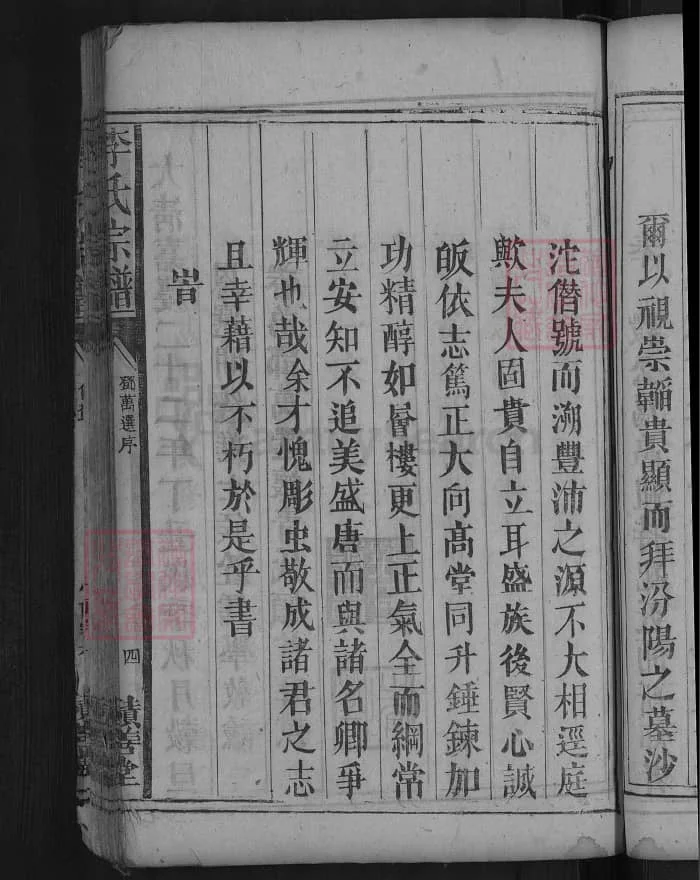 爾以視崇韜貴顯而拜汾陽之墓沙
沱僭號而溯豐沛之源不大相逕庭
歟夫人固貴自立耳盛族後賢心誠
皈依志篤正大向高堂同升錘鍊加
功精醇如層樓更上正氣全而綱常
立安知不追美盛唐而與諸名卿爭
輝也哉余才愧彫虫敬成諸君之志
且幸藉以不朽於是乎書
旹
李氏宗譜
鄧萬選序
四
積善堂